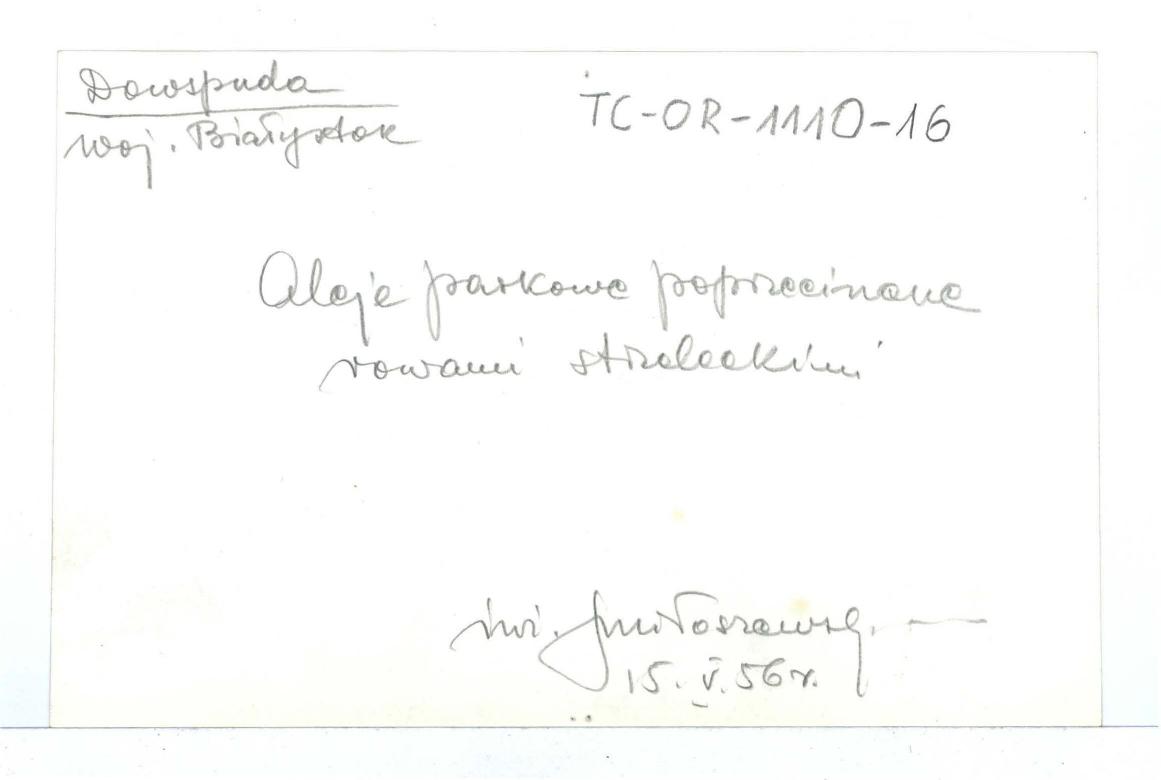 Dowspuda
TC-OR-1110-16
woj. Białystok
Aleje parkowe poprzecinane
rowami strzeleckimi
inż.
15.V.56 r.